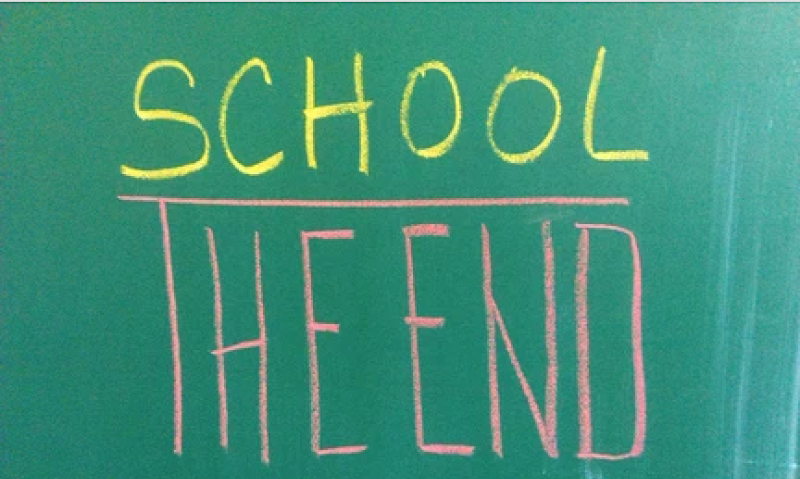 SCHOOL
THE END